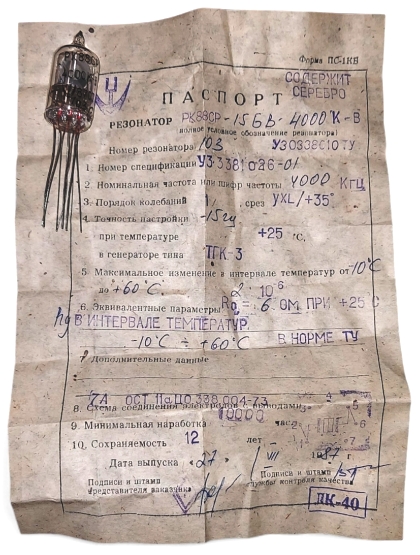 Форма ПС-1КВ
СОДЕРЖИТ
СЕРЕБРО
ПАСПОРТ
РЕЗОНАТОР РК89СР-15БВ-4000К-В
(полное условное обозначение резонатора)
Номер резонатора 103 У30338С10ТУ
1. Номер спецификации У3.3381026-01
2. Номинальная частота или шифр частоты 4000 КГЦ
3. Порядок колебаний 1, срез УХL/+35°
4. Точность настройки -15
при температуре +25 °С,
в генераторе типа ТГК-3
5. Максимальное изменение в интервале температур от -10°С
до +60°С. 2·10⁻⁶
6. Эквивалентные параметры R = 6 ОМ. ПРИ +25 С
В ИНТЕРВАЛЕ ТЕМПЕРАТУР
-10°С ÷ +60°С В НОРМЕ ТУ
7. Дополнительные данные
7А ОСТ 11 338.004-73
8. Схема соединения электродов с выводами
9. Минимальная наработка 10000 час
10. Сохраняемость 12 лет
Дата выпуска «27» VII 1987 г
Подписи и штамп
представителя заказчика
Подписи и штамп
службы контроля качества
ПК-40